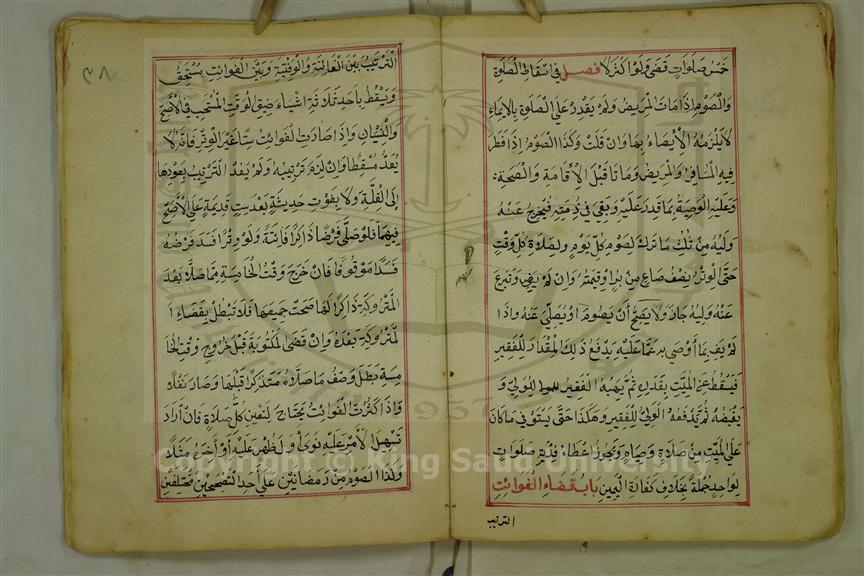 خمس صلوات قضي ولو اكثر لا فصل في اسقاط الصلوة
والصوم اذا مات المريض ولم يقدر علي الصلوة بالايماء
لا يلزمه الايصاء بها وان قلت وكذا الصوم اذا فطر
فيه المسافر والمريض وماتا قبل الاقامة والصحة
وعليه الوصية بما قدر عليه وبقي في ذمته فيخرج عنه
وليه من ثلث ما ترك لصوم كل يوم ولصلاة كل وقت
حتى الوتر نصف صاع من بر او قيمته وان لم يفي وتبرع
عنه وليه جاز ولا يصح أن يصوم او يصلي عنه واذا
لم يف بما أوصي به عما عليه يدفع ذلك المقدار للفقير
فيسقط عن الميت بقدره ثم يهبه الفقير للولي و
يقبضه ثم يدفعه الولي للفقير وهكذا حتى يستوفي ما كان
علي الميت من صلاة وصيام ويجوز اعطاء فدية صلوات
لواحد جملة بخلاف كفارة اليمين باب قضاء الفوائت
الترتيب
٣٨
الترتيب بين الفائتة والوقتية وبين الفوائت يستحق
ويسقط بأحد ثلاثة اشياء ضيق الوقت المستحب في الاصح
والنسيان واذا صارت الفوائت ستا غير الوتر فانه لا
يعد مسقطا وان لزم ترتيبه ولم يعد الترتيب بعودها
إلى القلة ولا بفوت حديثة بعد ست قديمة علي الاصح
فيهما فلو صلي فرضا ذاكرا فائتة ولو وترا فسد فرضه
فسادا موقوفا فان خرج وقت الخامسة مما صلاه بعد
المتروكة ذاكرا لها صحت جميعها فلا تبطل بقضاء ا
لمتروكة بعده وان قضي المكتوبة قبل خروج وقت الخا
مسة بطل وصف ما صلاه متذكرا قبلها وصار نفلا
واذا كثرت الفوائت يحتاج لتعين كل صلاة فان أراد
تسهيل الأمر عليه نوى أول ظهر عليه أو آخره مثلا
وكذا الصوم من رمضانين علي أحد التصحيحين مختلفين
Copyright © King Saud University
1957